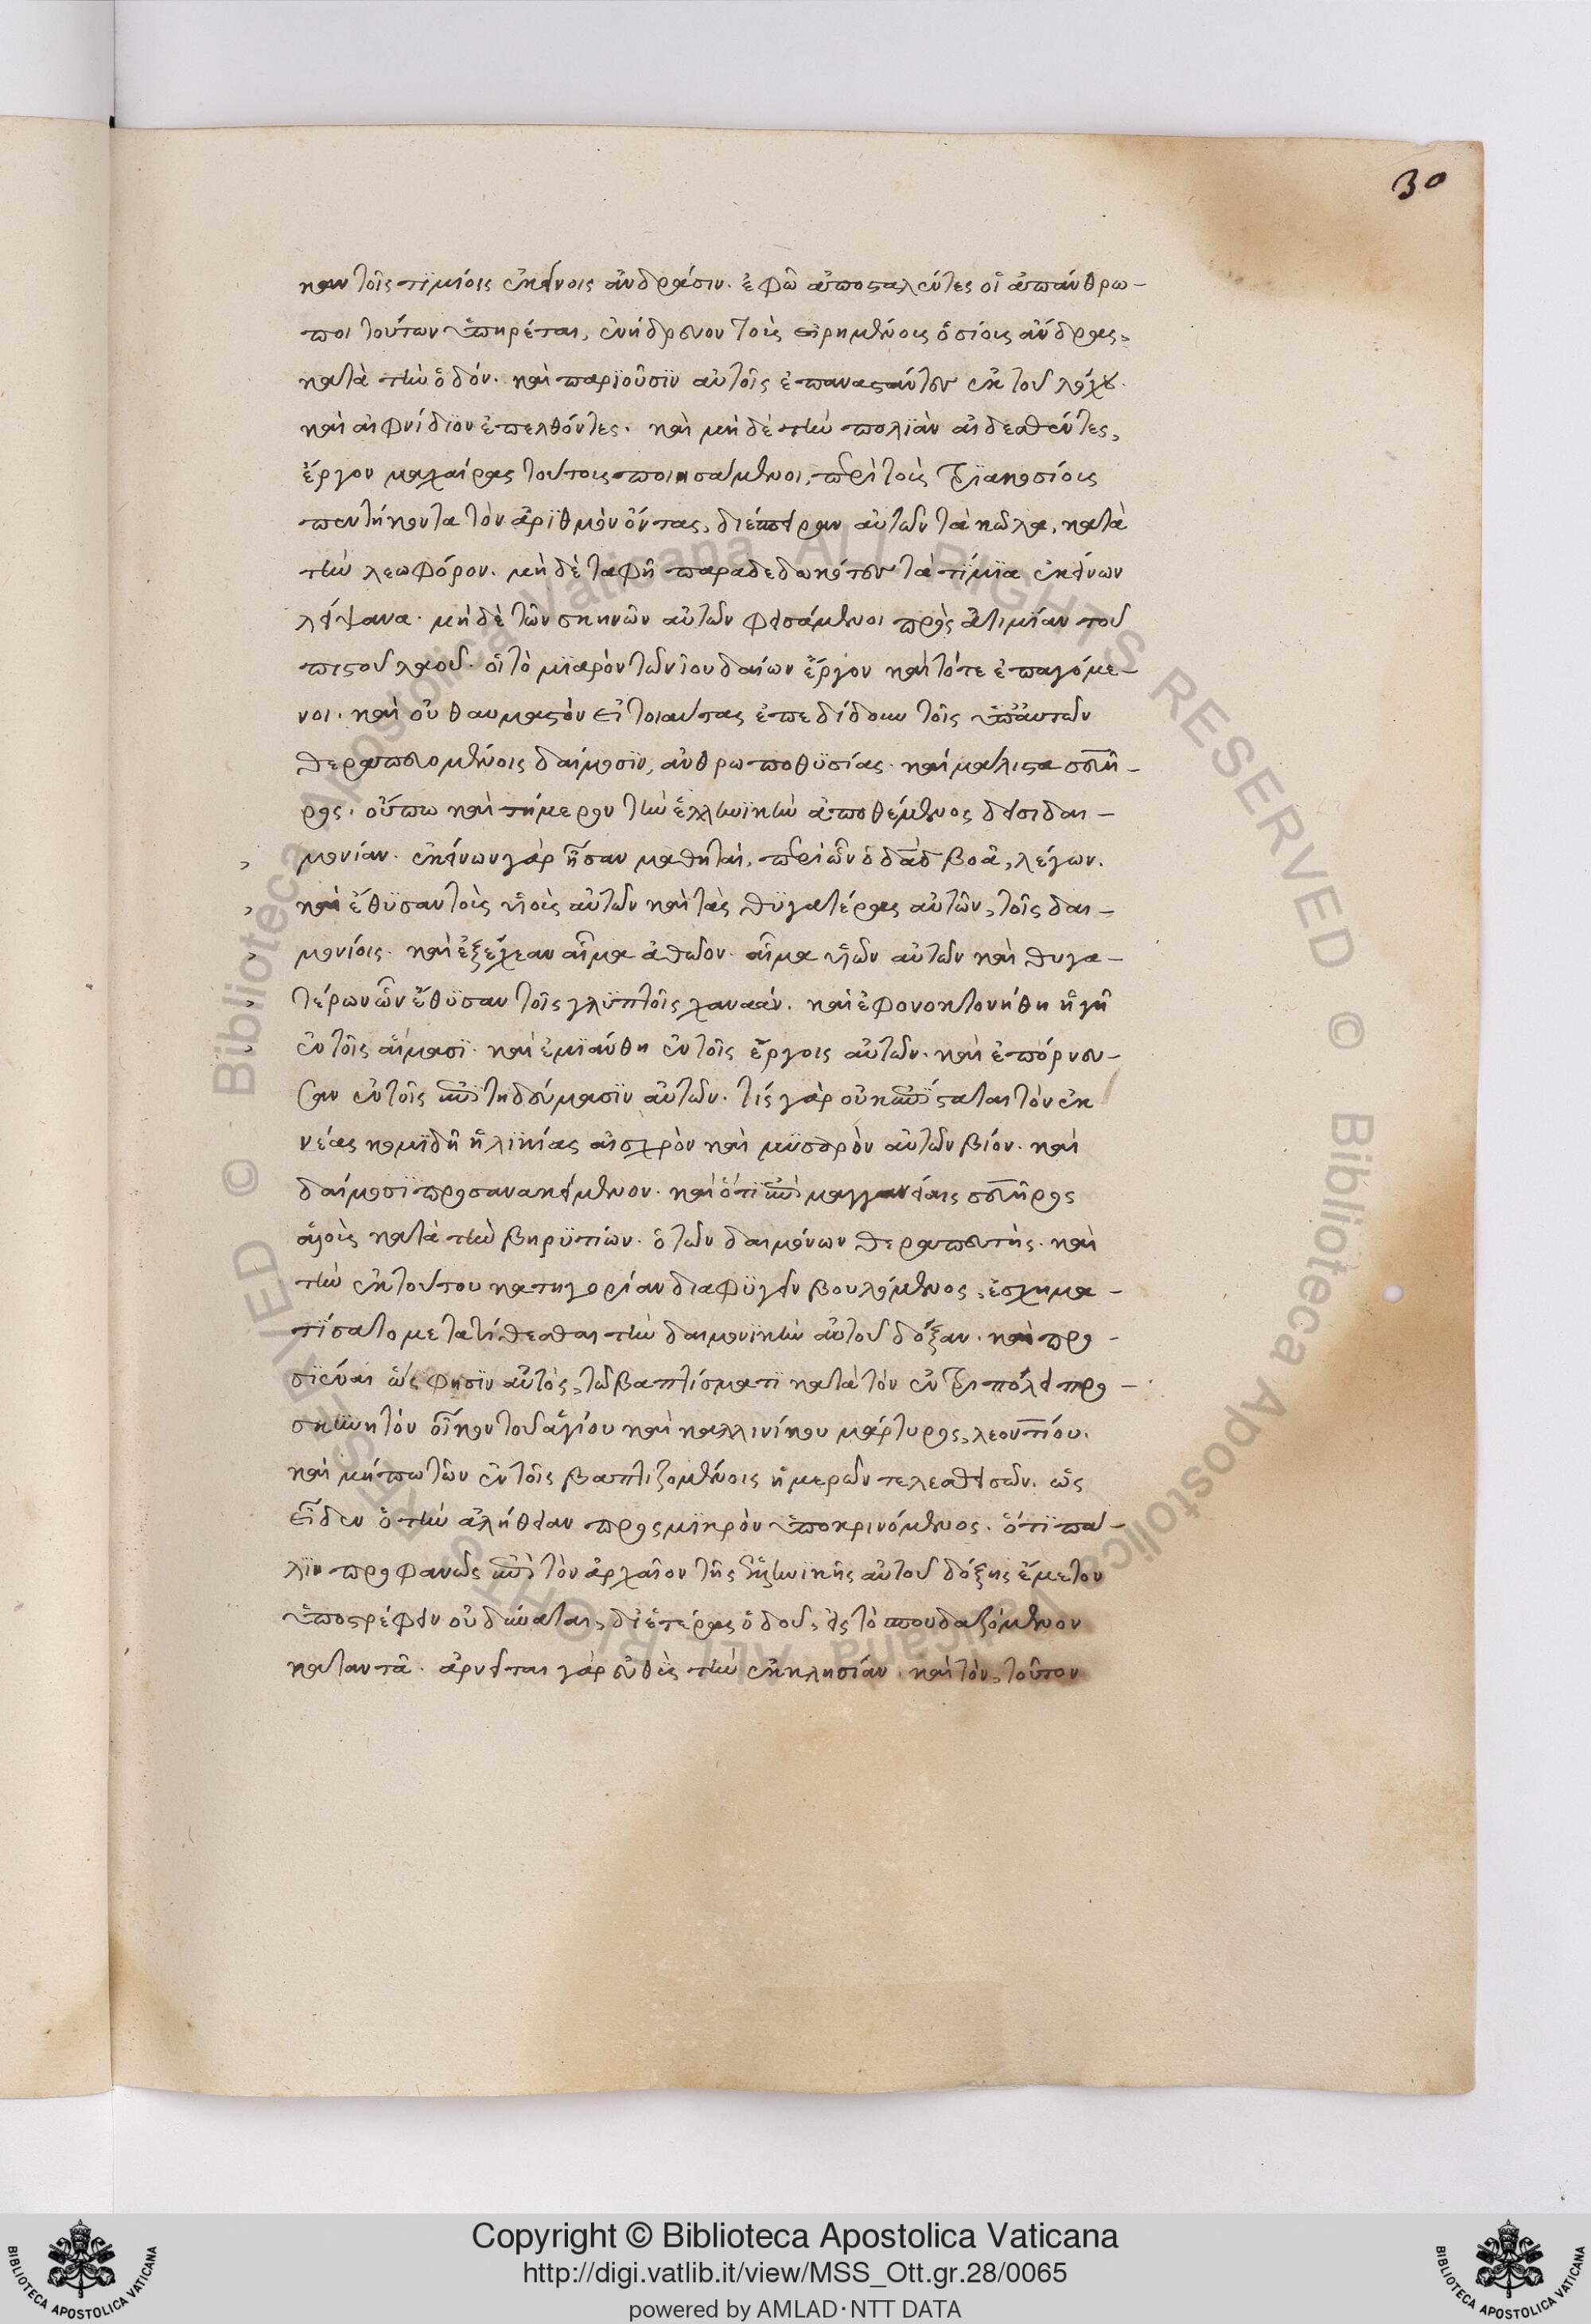 30
καν τοῖς τιμίοις ἐκείνοις ἀνδράσιν. ἐφῶ ἀποσταλέντες οἱ ἀπάνθρω-
ποι τούτων ὑπηρέται, ἐνήδρευον τοὺς εἰρημένους ὁσίους ἄνδρας,
κατὰ τὴν ὁδόν. καὶ παριοῦσϊν αὐτοῖς ἐπαναστάντων ἐκ τοῦ λόχου.
καὶ αἰφνίδϊον ἐπελθόντες. καὶ μὴ δὲ τὴν πολϊὰν αἰδεσθέντες,
ἔργον μαχαίρας τούτους ποιησάμενοι, περὶ τοὺς τρϊακοσίους
πεντήκοντα τὸν ἀρϊθμὸν ὄντας, διέσπειραν αὐτῶν τὰ κῶλα, κατὰ
τὴν λεωφόρον. μὴ δὲ ταφῆ παραδεδωκότων τὰ τίμϊα ἐκείνων
λείψανα. μὴ δὲ τῶν σκηνῶν αὐτῶν φεισάμενοι πρὸς ἀτιμίαν τοῦ
πιστοῦ λαοῦ. οἱ τὸ μϊαρὸν τῶν ἰουδαίων ἔργον καὶ τότε ἐπαγόμε-
νοι. καὶ οὐ θαυμαστὸν εἰ τοιαύτας ἐπεδίδουν τοῖς ὑπ' αὐτῶν
θεραπευομένοις δαίμοσϊν, ἀνθρωποθϋσίας. καὶ μάλιστα σευῆ-
ρος. οὔπω καὶ τήμερον τὴν ἑλληνϊκὴν ἀποθέμενος δεισιδαι-
μονίαν. ἐκείνων γὰρ ἦσαν μαθηταὶ, περὶ ὧν ὁ δαδ βοᾶ, λέγων.
καὶ ἔθϋσαν τοὺς υἱοὺς αὐτῶν καὶ τὰς θϋγατέρας αὐτῶν, τοῖς δαι-
μονίοις. καὶ ἐξέχεαν αἷμα ἀθῶον. αἷμα υἱῶν αὐτῶν καὶ θυγα-
τέρων ὧν ἔθϋσαν τοῖς γλϋπτοῖς χαναάν. καὶ ἐφονοκτονήθη ἡ γῆ
ἐν τοῖς αἵμασϊ. καὶ ἐμϊάνθη ἐν τοῖς ἔργοις αὐτῶν. καὶ ἐπόρνευ-
σαν ἐν τοῖς ἐπϊτηδεύμασϊν αὐτῶν. τίς γὰρ οὐκ ἐπίσταται τὸν ἐκ
νέας κομϊδῆ ἡλϊκίας αἰσχρὸν καὶ μϋσαρὸν αὐτῶν βίον. καὶ
δαίμοσϊ προσανακείμενον. καὶ ὅτϊ ἐπὶ μαγγανείαις σευῆρος
ἁλοὺς κατὰ τὴν βηρϋτίων. ὁ τῶν δαιμόνων θεραπευτής. καὶ
τὴν ἐκ τούτου κατηγορίαν διαφϋγεῖν βουλόμενος, ἐσχημα-
τίσατο μετατίθεσθαι τὴν δαιμονϊκὴν αὐτοῦ δόξαν. καὶ προ-
σϊέναι ὥς φησϊν αὐτὸς, τῶ βαπτίσματϊ κατὰ τὸν ἐν τριπόλει προ-
σκϋνητὸν οἶκον τοῦ ἁγίου καὶ καλλινίκου μάρτυρος, λεοντίου.
καὶ μήπω τῶν ἐν τοῖς βαπτιζομένοις ἡμερῶν τελεσθεισῶν. ὡς
εἶδεν ὁ τὴν ἀλήθειαν πρὸς μϊκρὸν ὑποκρινόμενος. ὅτϊ πά-
λϊν προφανῶς ἐπὶ τὸν ἀρχαῖον τῆς ἑλληνϊκῆς αὐτοῦ δόξης ἔμετον
ὑποστρέφειν οὐ δύναται, δι' ἑτέρας ὁδοῦ, εἰς τὸ σπουδαζόμενον
καταντᾶ. ἀρνεῖται γὰρ εὐθὺς τὴν ἐκκλησίαν. καὶ τὸν, τοῦτον
Copyright © Biblioteca Apostolica Vaticana
http://digi.vatlib.it/view/MSS_Ott.gr.28/0065
powered by AMLAD·NTT DATA
BIBLIOTECA APOSTOLICA VATICANA
BIBLIOTECA APOSTOLICA VATICANA